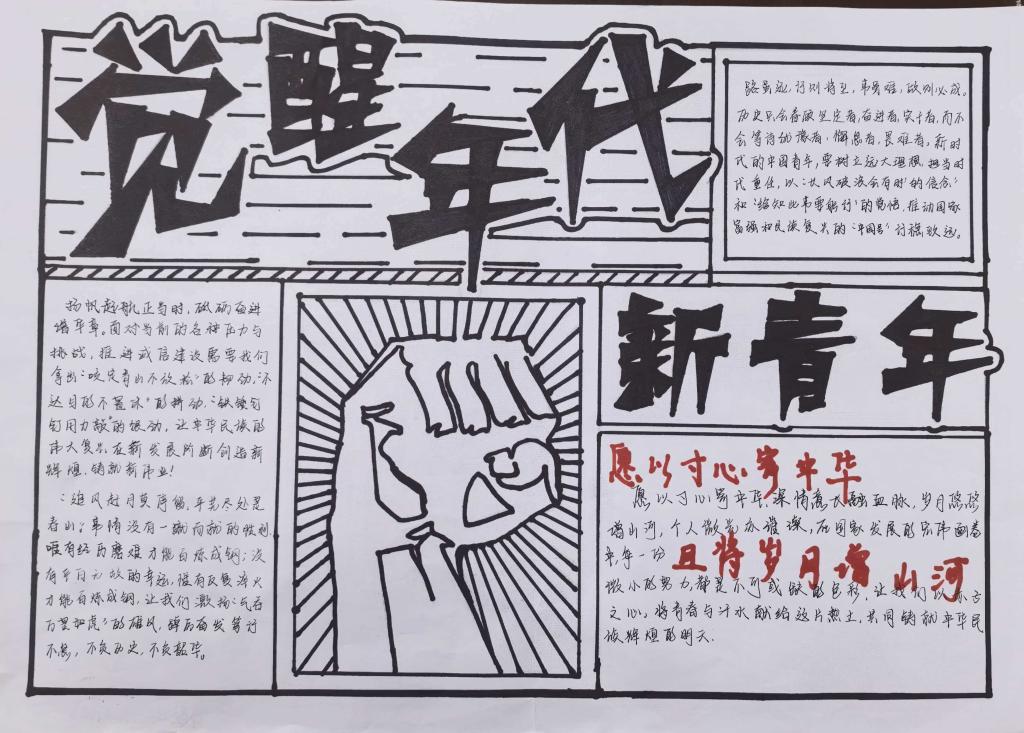 觉醒年代
路虽远,行则将至,事虽难,做则必成。
历史只会眷顾坚定者,奋进者,实干者,而不
会等待犹豫者,懈怠者,畏难者,新时
代的中国青年,要树立远大理想,担当时
代重任,以“长风破浪会有时”的信念
和“绝知此事要躬行”的觉悟,推动国家
富强和民族复兴的“中国号”行稳致远。
扬帆起航正当时,砥砺奋进
谱华章。面对当前的各种压力与
挑战,推进诚信建设需要我们
拿出“咬定青山不放松”的韧劲,“不
达目的不罢休”的拼劲,“铁锁钉
钉用力敲”的狠劲,让中华民族的
伟大复兴在新发展阶断创造新
辉煌,铸就新伟业!
“追风赶月莫停留,平芜尽处是
春山”;事情没有一蹴而就的胜利
唯有经历磨难才能百炼成钢;没
有平白无故的幸运,唯有反复淬火
才能百炼成钢,让我们激扬“气吞
万里如虎”的雄风,踔厉奋发笃行
不怠,不负历史,不负韶华。
新青年
愿以寸心寄中华
愿以寸心寄中华,深情 融血脉,岁月悠悠
增山河,个人微光亦谁 ,在国家发展的宏伟画卷
中,每一份
且将岁月增山河
微小的努力,都是不可或缺的色彩,让我们以 古
之心,将青春与汗水献给这片热土,共同铸就中华民
族辉煌的明天.